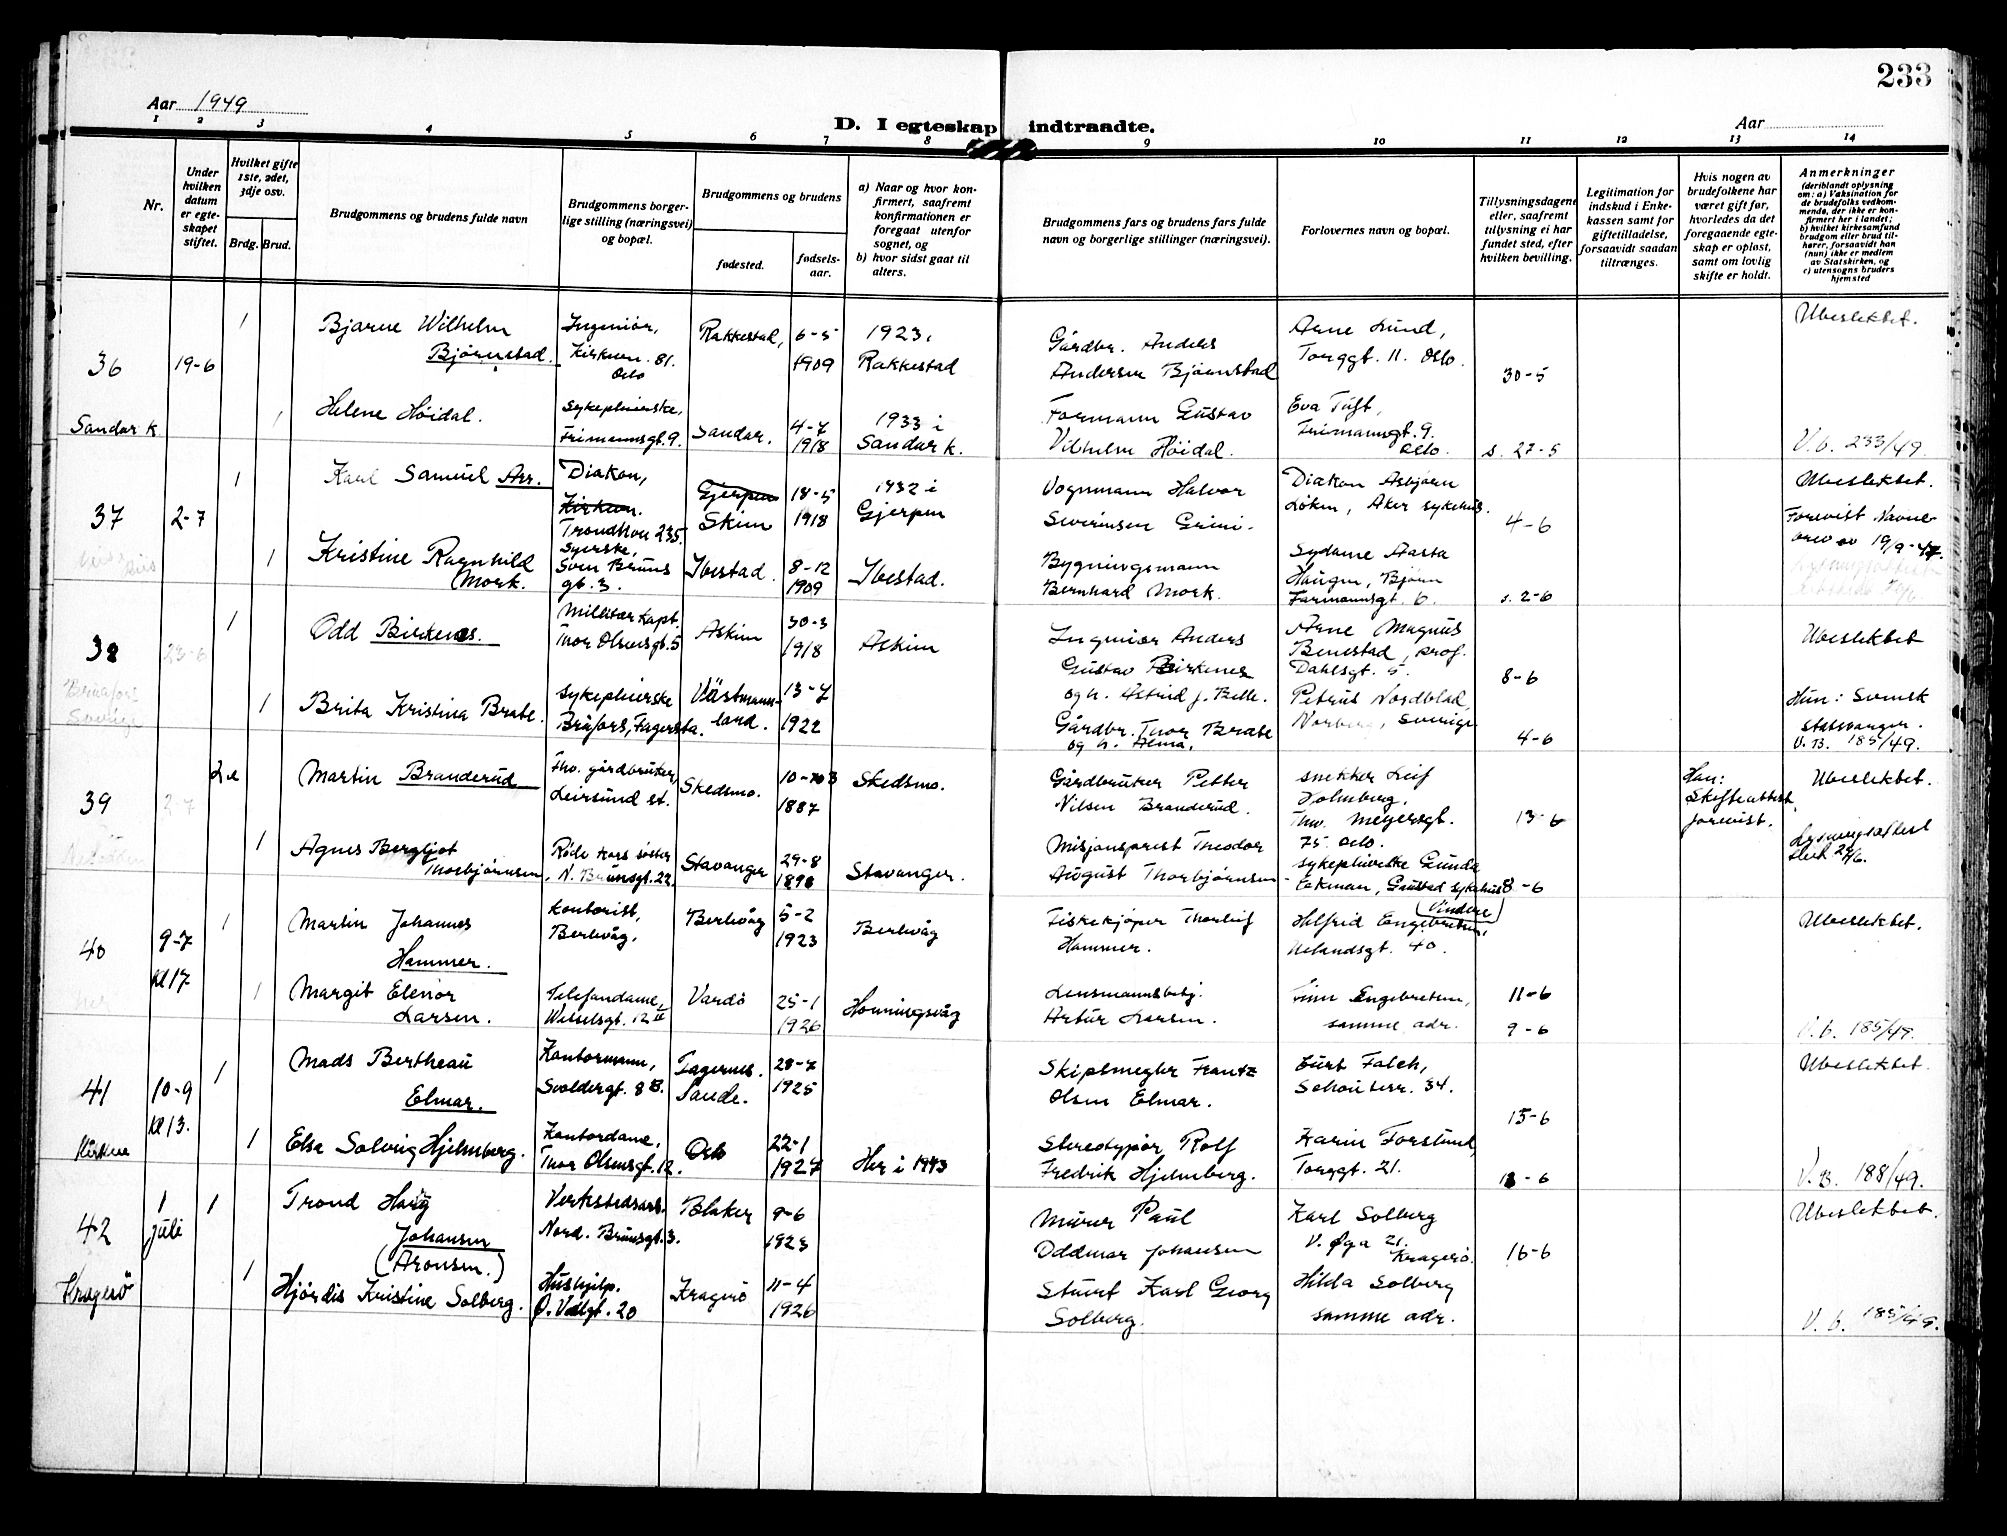 233
Aar 1949
D. I egteskap indtraadte.
Aar
1 2 3 4 5 6 7 8 9 10 11 12 13 14
Nr.
Under hvilken datum er egteskapet stiftet.
Hvilket gifte 1ste, 2det, 3dje osv.
Brdg. Brud.
Brudgommens og brudens fulde navn
Brudgommens borgerlige stilling (næringsvei) og bopæl.
Brudgommens og brudens
fødested.
fødselsaar.
a) Naar og hvor konfirmert, saafremt konfirmationen er foregaat utenfor sognet, og
b) hvor sidst gaat til alters.
Brudgommens fars og brudens fars fulde navn og borgerlige stillinger (næringsvei).
Forlovernes navn og bopæl.
Tillysningsdagene eller, saafremt tillysning ei har fundet sted, efter hvilken bevilling.
Legitimation for indskud i Enkekassen samt for giftetilladelse, forsaavidt saadan tiltrænges.
Hvis nogen av brudefolkene har været gift før, hvorledes da det foregaaende egteskap er opløst, samt om lovlig skifte er holdt.
Anmerkninger
(deriblandt oplysning om: a) Vaksination for de brudefolks vedkommende, der ikke er konfirmert her i landet;
b) hvilket kirkesamfund brudgom eller brud tilhører, forsaavidt han (hun) ikke er medlem av Statskirken, og
c) utensogns bruders hjemsted
36
19-6
1
Bjarne Wilhelm
Bjørnstad.
Ingeniør,
Kirkevn. 81.
Oslo
Rakkestad,
6-5
1909
1923 i
Rakkestad
Gårdbr. Anders
Andersen Bjørnstad
Arne Lund,
Torggt. 11. Oslo.
30-5
Ubeslektet.
Sandar k.
1
Helene Høidal.
Sykepleierske,
Frimannsgt. 9.
Sandar.
4-7
1918
1933 i
Sandar k.
Formann Gustav
Vilhelm Høidal.
Eva Tuft,
Frimannsgt. 9.
Oslo.
s. 27-5
V.b. 233/49.
37
2-7
1
Karl Samuel Arr.
Diakon,
Kirkevn.
Trondhvn 235.
Gjerpen
Skien
18-5
1918
1932 i
Gjerpen
Vognmann Halvor
Severinsen Grini.
Diakon Asbjørn
Løken, Aker sykehus.
4-6
Ubeslektet.
Forevist Navne-
brev av 19/9-47.
1
Kristine Ragnhild
Mork.
Syerske,
Sven Bruns
gt. 3.
Ibestad.
8-12
1909
Ibestad.
Bygningsmann
Bernhard Mork.
Sydame Aasta
Haugen, Bjørn
Farmannsgt. 6.
s. 2-6
38
23-6
1
Odd Birkenes.
Militær kapt.
Thor Olsensgt. 5
Askim
30-3
1918
Askim
Ingeniør Anders
Gustav Birkenes
og h. Astrid f. Belle.
Arne Magnus
Benestad, prof.
Dahlsgt. 5.
8-6
Ubeslektet
1
Brita Kristina Brate.
Sykepleierske
Bråfors, Fagersta.
Västmann-
land.
13-7
1922
Gårdbr. Thor Brate
og h. Anna,
Petrus Nordblad,
Norberg, Sverige
4-6
Hun: Svensk
statsborger.
V.B. 185/49.
39
2-7
2.e
Martin Branderud
Fhv. gårdbruker,
Leirsund st.
Skedsmo.
10-3
1887
Skedsmo.
Gårdbruker Petter
Nilsen Branderud.
Snekker Leif
Holmberg,
Thv. Meyersgt.
75. Oslo.
13-6
Han:
Skifteattest
forevist.
Ubeslektet.
1
Agnes Bergljot
Thorbjørnsen
Røde Kors søster
N. Brunsgt. 22.
Stavanger
29-8
1898
Stavanger.
Misjonsprest Theodor
August Thorbjørnsen
Sykepleierske Gunda
Eekman, Gaustad sykehus
(Vindern)
8-6
Lysningsattest
sterk 29/6.
40
9-7
Kl 17
1
Martin Johannes
Hammer.
Kontorist,
Berlevåg.
Berlevåg
5-2
1923
Berlevåg
Fiskekjøper Thorleif
Hammer.
Helfrid Engebretsen,
Uelandsgt. 40.
11-6
Ubeslektet.
1
Margit Elenor
Larsen.
Telefondame,
Wesselsgt. 12 II
Vardø
25-1
1926
Honningsvåg
Lensmannsbetj.
Artur Larsen.
Finn Engebretsen,
samme adr.
9-6
V.b. 185/49.
41
10-9
Kl 13.
1
Mads Bertheau
Elmar.
Kontormann,
Svoldergt. 8 B.
Fagernes.
Sande.
28-7
1925
Skipsmegler Frantz
Olsen Elmar.
Curt Falch,
Schous terr. 34.
15-6
Ubeslektet.
Kirken
1
Else Solveig Hjelmberg.
Kontordame,
Thor Olsensgt. 12.
Oslo
22-1
1927
Her i 1943
Stereotypør Rolf
Fredrik Hjelmberg.
Karin Forslund,
Torggt. 21.
13-6
V.B. 188/49.
42
1
juli
1
Trond Haug
Johansen
(Aronsen.)
Verkstedsarb.
Nord. Brunsgt. 3.
Blaker
9-6
1923
Murer Paul
Oddmar Johansen
Karl Solberg
V. Øya 21.
Kragerø.
16-6
Ubeslektet.
Kragerø
1
Hjørdis Kristine Solberg.
Hushjelp.
O. Vollgt. 20
Kragerø
11-4
1926
Stuert Karl Georg
Solberg.
Hilda Solberg
samme adr.
V.b. 185/49.